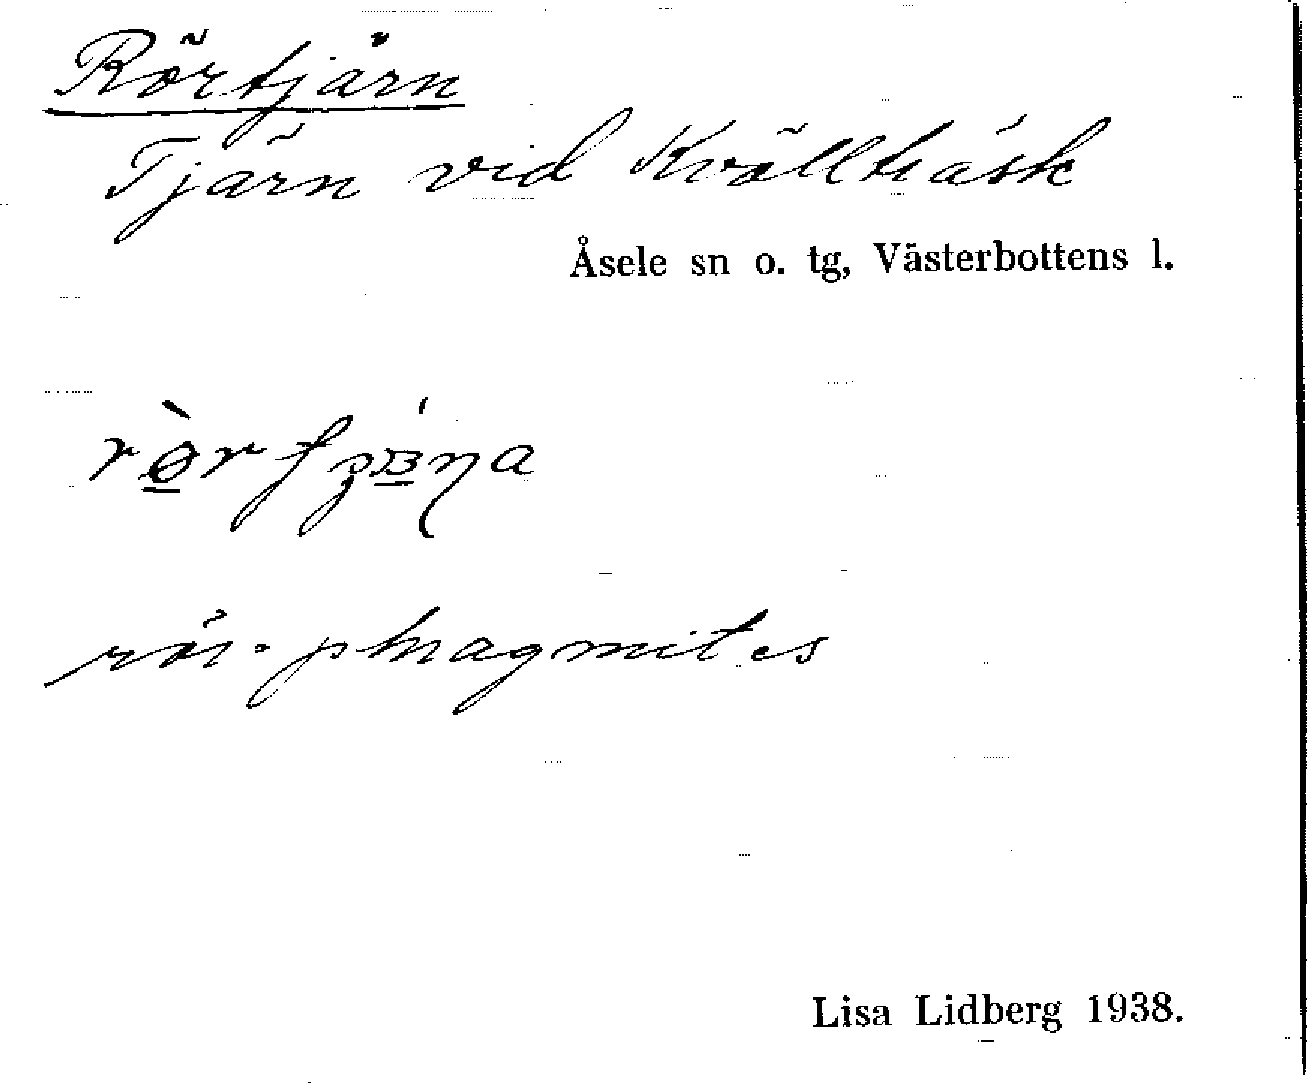 Rörtjärn
Tjärn vid Kvällträsk
Åsele sn o. tg, Västerbottens l.
rör- phragmites
Lisa Lidberg 1938.